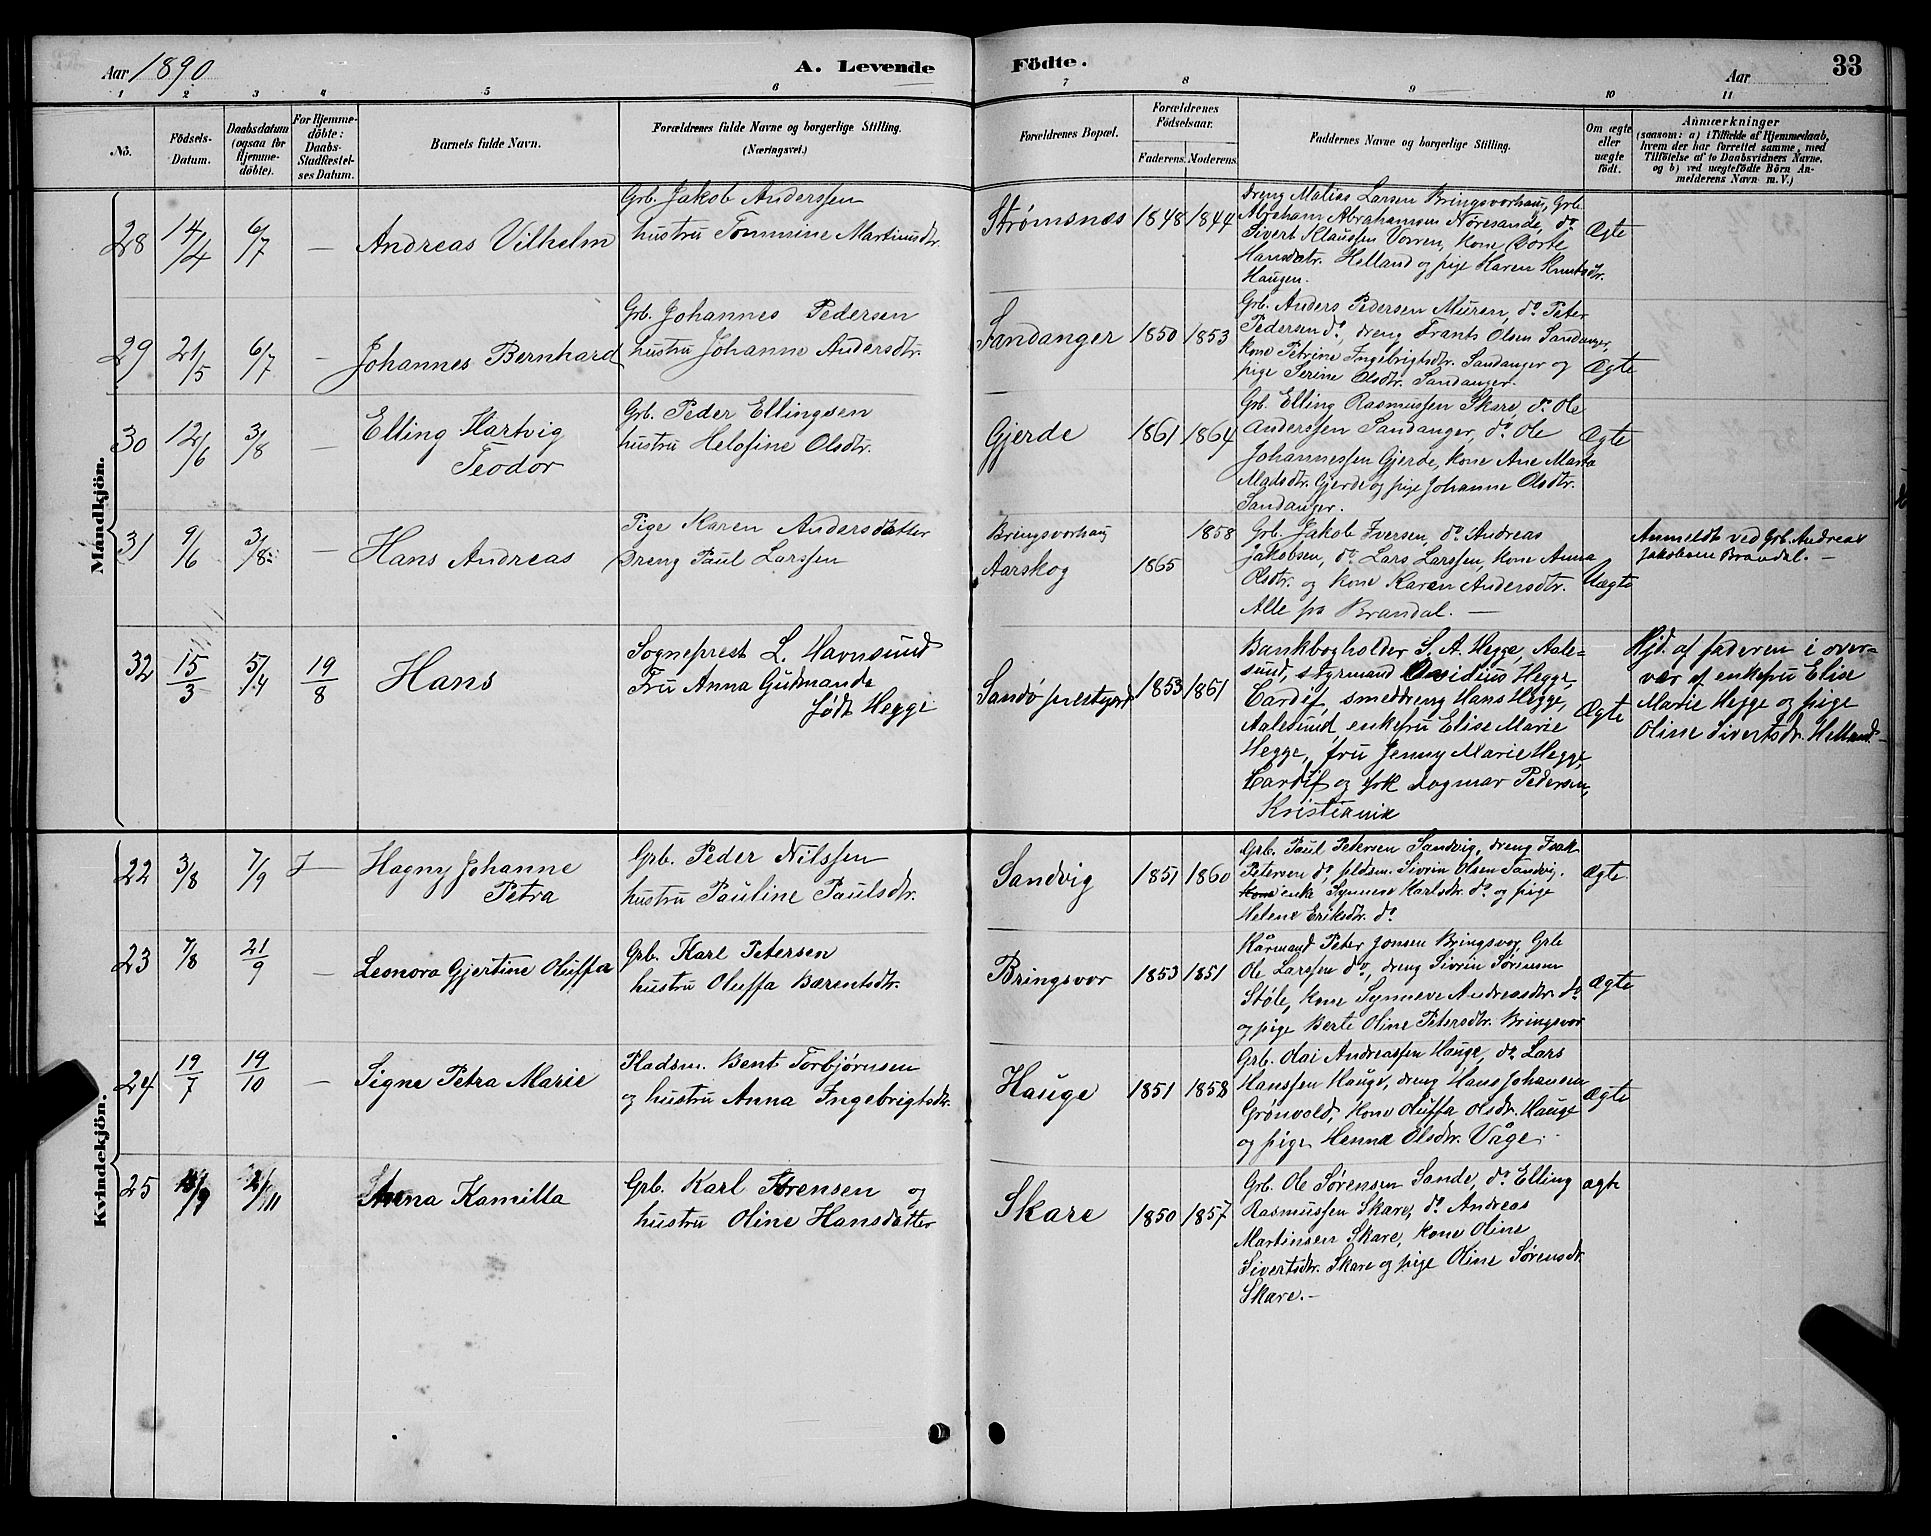 Aar 1890
A. Levende
Födte.
Aar
33
1 2 3 4 5 6 7 8 9 10 11
Nö.
Födsels-
Datum.
Daabsdatum
(ogsaa for
Hjemme-
döbte).
For Hjemme-
döbte:
Daabs-
Stadfæstel-
ses Datum.
Barnets fulde Navn.
Forældrenes fulde Navne og borgerlige Stilling.
(Næringsvei.)
Forældrenes Bopæl.
Forældrenes
Födselsaar.
Faderens. Moderens.
Faddernes Navne og borgerlige Stilling.
Om ægte
eller
uægte
födt.
Anmærkninger
(saasom: a) i Tilfælde af Hjemmedaab,
hvem der har forrettet samme, med
Tilföielse af to Daabsvidners Navne,
og b) ved uægtefödte Börn An-
melderens Navn m. V.)
Mandkjön.
28 14/4 6/7 — Andreas Vilhelm
Grb. Jakob Anderssen
hustru Tommine Martinusdtr.
Strømsnæs 1848 1844
dreng Matias Larsen Bringsvorhaug, Grb.
Abraham Abrahamsen Nøresande, do
Sivert Klaussen Vorren, kone Dorte
Hansdatr. Helland og pige Haren Knutsdtr.
Haugen.
Ægte
29 21/5 6/7 — Johannes Bernhard
Grb. Johannes Pedersen
hustru Johanne Andersdtr.
Sandanger 1850 1853
Grb. Anders Pedersen Muren, do Peter
Pedersen do, dreng Frants Olsen Sandanger,
kone Petrine Ingebrigtsdtr. Sandanger og
pige Serine Olsdtr. Sandanger.
Ægte
30 12/6 3/8 — Elling Hartvig
Teodor
Grb. Peder Ellingsen
hustru Helofine Olsdtr.
Gjerde 1861 1864
Grb. Elling Rasmussen Skare, do Ole
Anderssen Sandanger, do Ole
Johannessen Gjerde, kone Ane Marta
Madsdtr. Gjerde og pige Johanne Olsdtr.
Sandanger.
Ægte
31 9/6 3/8 — Hans Andreas
Pige Karen Andersdatter
Dreng Paul Larssen
Bringsvorhaug 1858
Aarskog 1865
Grb. Jakob Iversen, do Andreas
Jakobsen, do Lars Larssen, kone Anna
Olsdtr. og kone Karen Andersdtr.
Alle på Brandal. —
Uægte
Anmeldt ved Grb. Andreas
Jakobsen Brandal. —
32 15/3 5/4 19/8 Hans
Sogneprest L. Havnsund
Fru Anna Gudmanda
født Hegge
Sandø prestegård 1853 1861
Bankbogholder S. A. Hegge, Aale-
sund, styrmand Ovidius Hegge,
Cardif, smeddreng Hans Hegge,
Aalesund, enkefru Elise Marie
Hegge, fru Jenny Marie Hegge,
Cardif og frk Dagmar Pedersen,
Kristiania
Ægte
Hjd. af faderen i over-
vær af enkefru Elise
Marie Hegge og pige
Oline Sivertsdr. Helland —
Kvindekjön.
22 3/8 7/9 — Hagny Johanne
Petra
Grb. Peder Nilssen
hustru Pauline Paulsdtr.
Sandvig 1851 1860
Grb. Paul Petersen Sandvig, dreng Isak
Petersen do, pldsm. Sivrin Olsen Sandvig.
kone enke Synneve Karlsdtr. do og pige
Helene Eriksdtr. do
Ægte
23 7/8 21/9 — Leonora Gjertine Oluffa
Grb. Karl Petersen
hustru Oluffa Bærentsdtr.
Bringsvor 1853 1851
Kårmand Peter Jonsen Bringsvor, Grb.
Ole Larssen do, dreng Sivrin Sørensen
Støle, kone Synneve Andreasdtr. do
og pige Berte Oline Petersdtr. Bringsvor
Ægte
24 19/7 19/10 — Signe Petra Marie
Pladsm. Bent Torbjørnsen
og hustru Anna Ingebrigtsdtr.
Hauge 1851 1858
Grb. Olai Andreassen Hauge, do Lars
Hanssen Hauge, dreng Hans Johansen
Grønvold, kone Oluffa Olsdtr. Hauge
og pige Hanna Olsdtr. Våge.
Ægte
25 2/11 Anna Kamilla
Grb. Karl Sørensen og
hustru Oline Hansdatter
Skare 1850 1857
Grb. Ole Sørensen Sande, do Elling
Rasmussen Skare, do Andreas
Martinsen Skare, kone Oline
Sivertsdtr. Skare og pige Oline Sørensdtr.
Skare. —
ægte